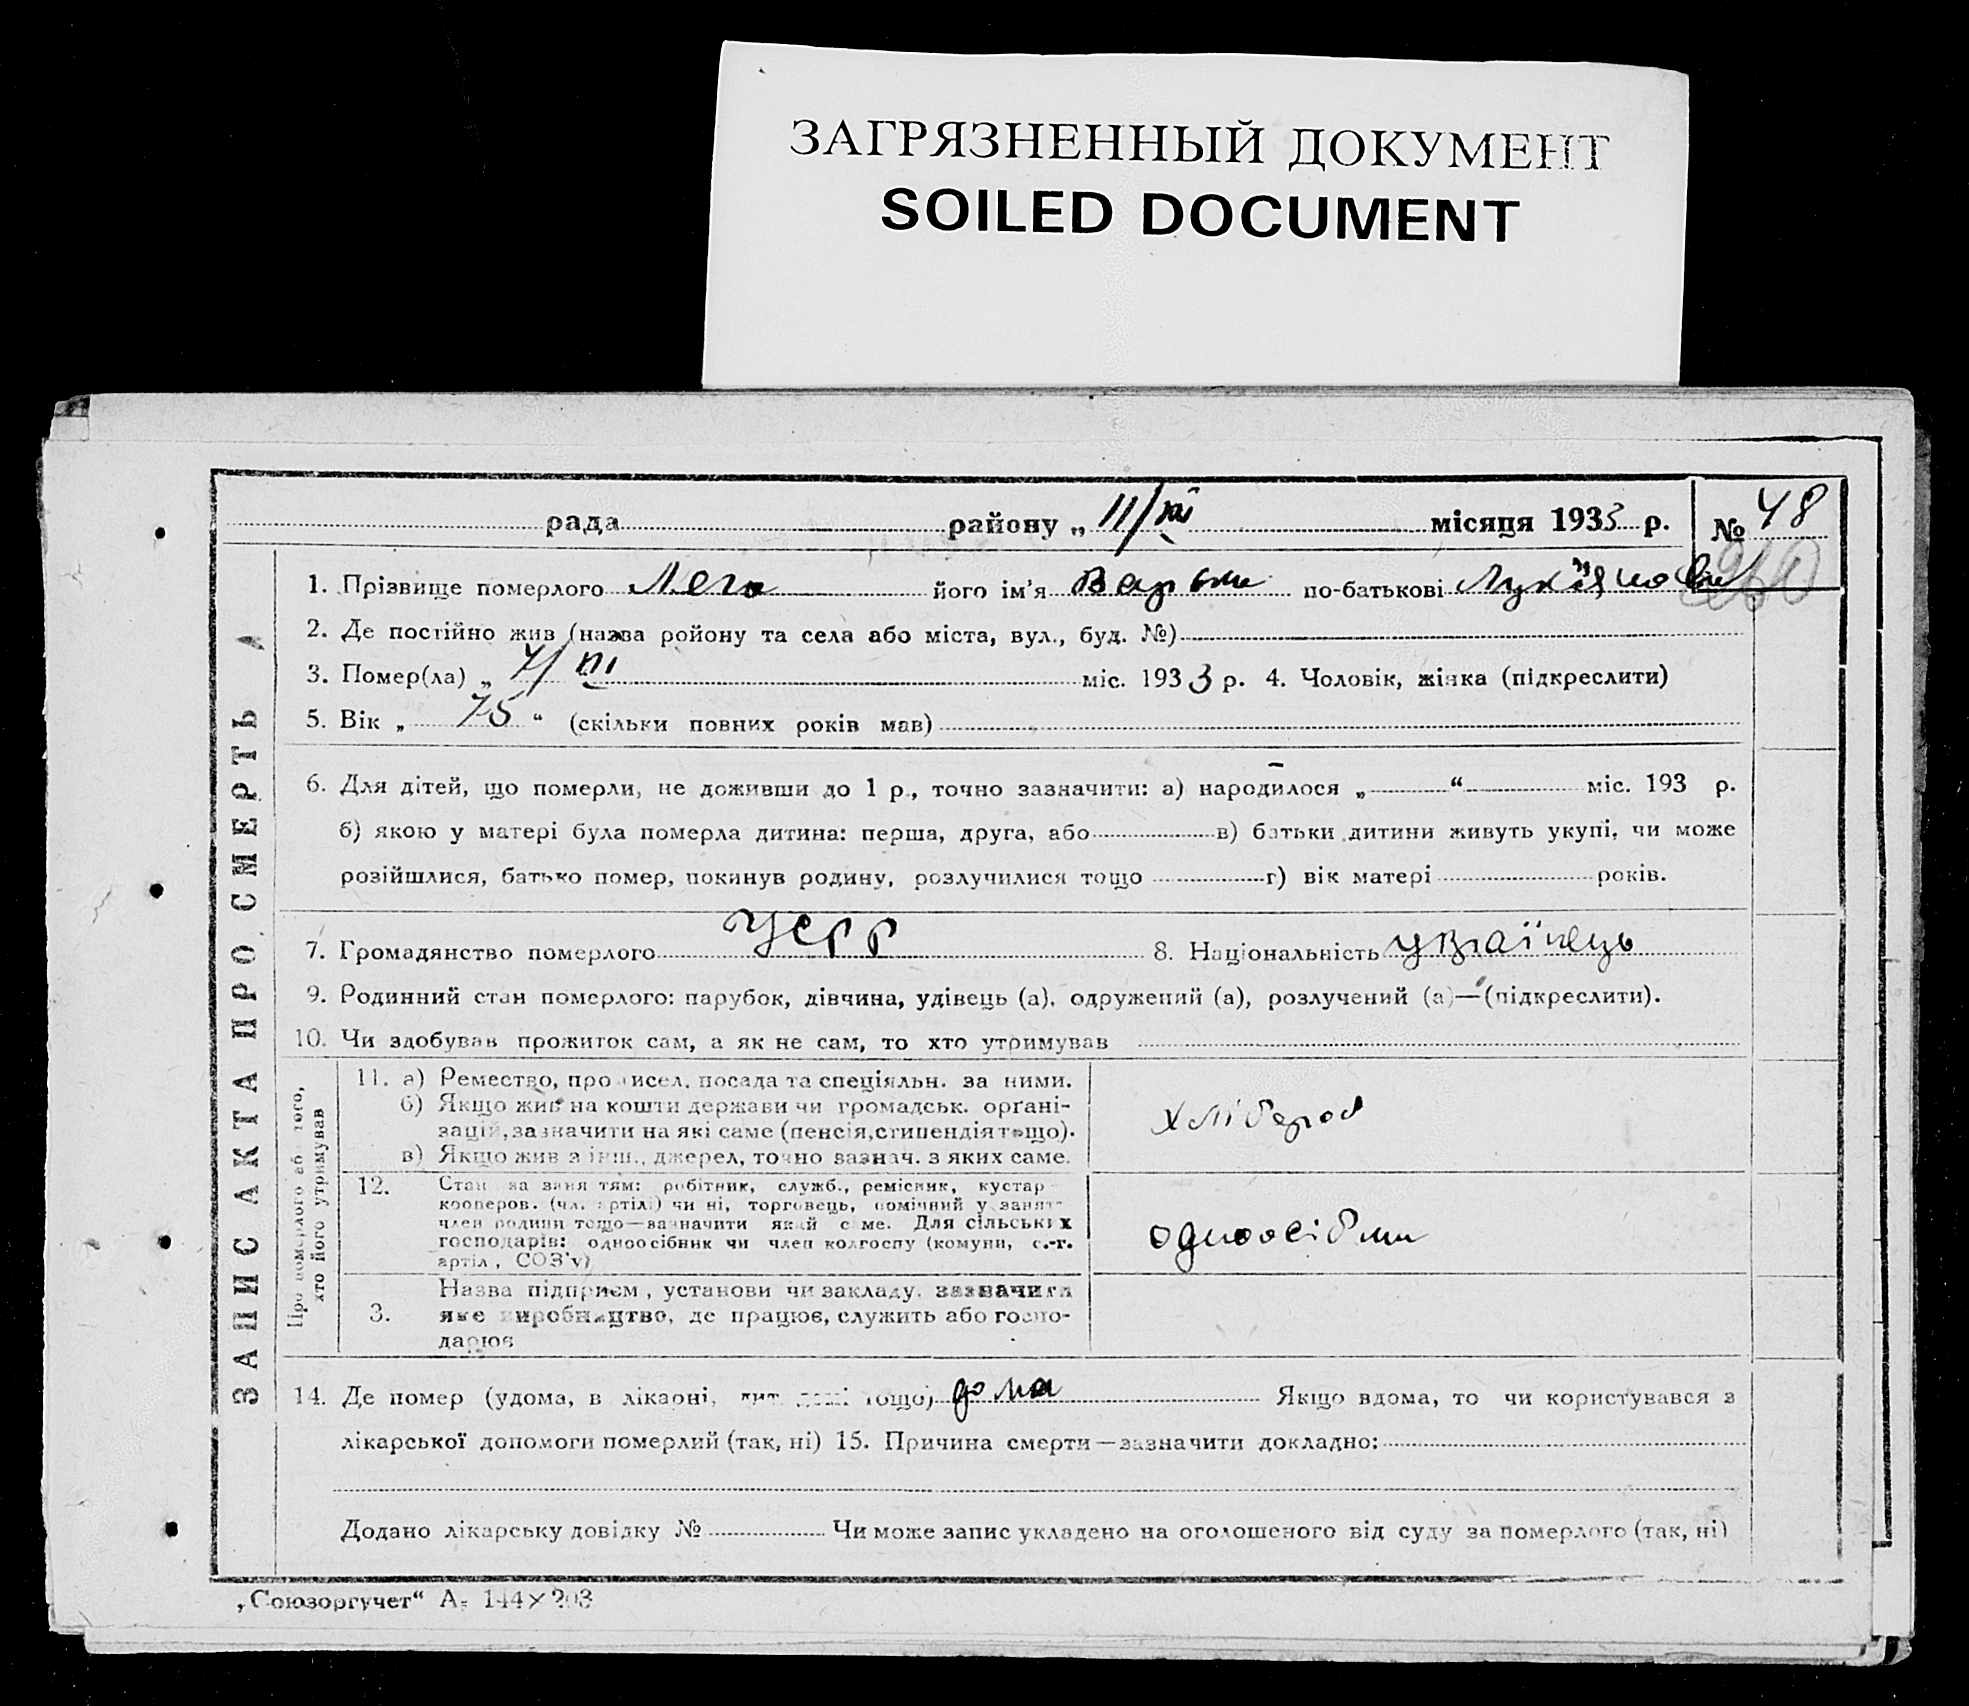 ЗАГРЯЗНЕННЫЙ ДОКУМЕНТ
SOILED DOCUMENT
рада району „ 11/III місяця 1933 р. № 48
260
ЗАПИС АКТА ПРО СМЕРТЬ
1. Прізвище померлого його ім'я по-батькові
2. Де постійно жив (назва ройону та села або міста, вул., буд. №)
3. Помер(ла) „ 7/III міс. 1933 р. 4. Чоловік, жінка (підкреслити)
5. Вік „ 75 “ (скільки повних років мав)
6. Для дітей, що померли, не доживши до 1 р., точно зазначити: а) народилося „ “ міс. 193 р.
б) якою у матері була померла дитина: перша, друга, або в) батьки дитини живуть укупі, чи може
розійшлися, батько помер, покинув родину, розлучилися тощо г) вік матері років.
7. Громадянство померлого УСРР 8. Національність українець
9. Родинний стан померлого: парубок, дівчина, удівець (а), одружений (а), розлучений (а)—(підкреслити).
10. Чи здобував прожиток сам, а як не сам, то хто утримував
Про померлого або того, хто його утримував
11. а) Ремество, промисел, посада та спеціяльн. за ними.
б) Якщо жив на кошти держави чи громадськ. орґані-
зацій, зазначити на які саме (пенсія, стипендія тощо).
в) Якщо жив з інш., джерел, точно зазнач. з яких саме.
хлібороб
12. Стан за заняттям: робітник, служб., ремісник, кустар
кооперов. (чл. артілі) чи ні, торговець, помічний у занят-
член родини тощо—зазначити який саме. Для сільських
господарів: одноосібник чи член колгоспу (комуни, с.-г.
артіл, СОЗ'у)
одноосібник
3. Назва підприєм, установи чи закладу, зазначити
яке виробництво, де працює, служить або госпо-
дарює
14. Де помер (удома, в лікарні, дит. домі тощо) дома Якщо вдома, то чи користувався з
лікарської допомоги померлий (так, ні) 15. Причина смерти—зазначити докладно:
Додано лікарську довідку № Чи може запис укладено на оголошеного від суду за померлого (так, ні)
„Союзоргучет“ А5 144×203